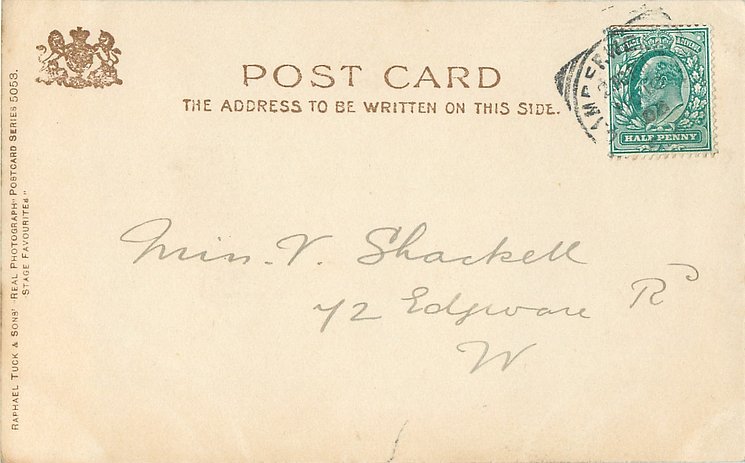 POST CARD
THE ADDRESS TO BE WRITTEN ON THIS SIDE.
HALF PENNY
Miss. V. Shackell
72 Edgware Rd
W
RAPHAEL TUCK & SONS' REAL PHOTOGRAPH POSTCARD SERIES 5053.
"STAGE FAVOURITES"